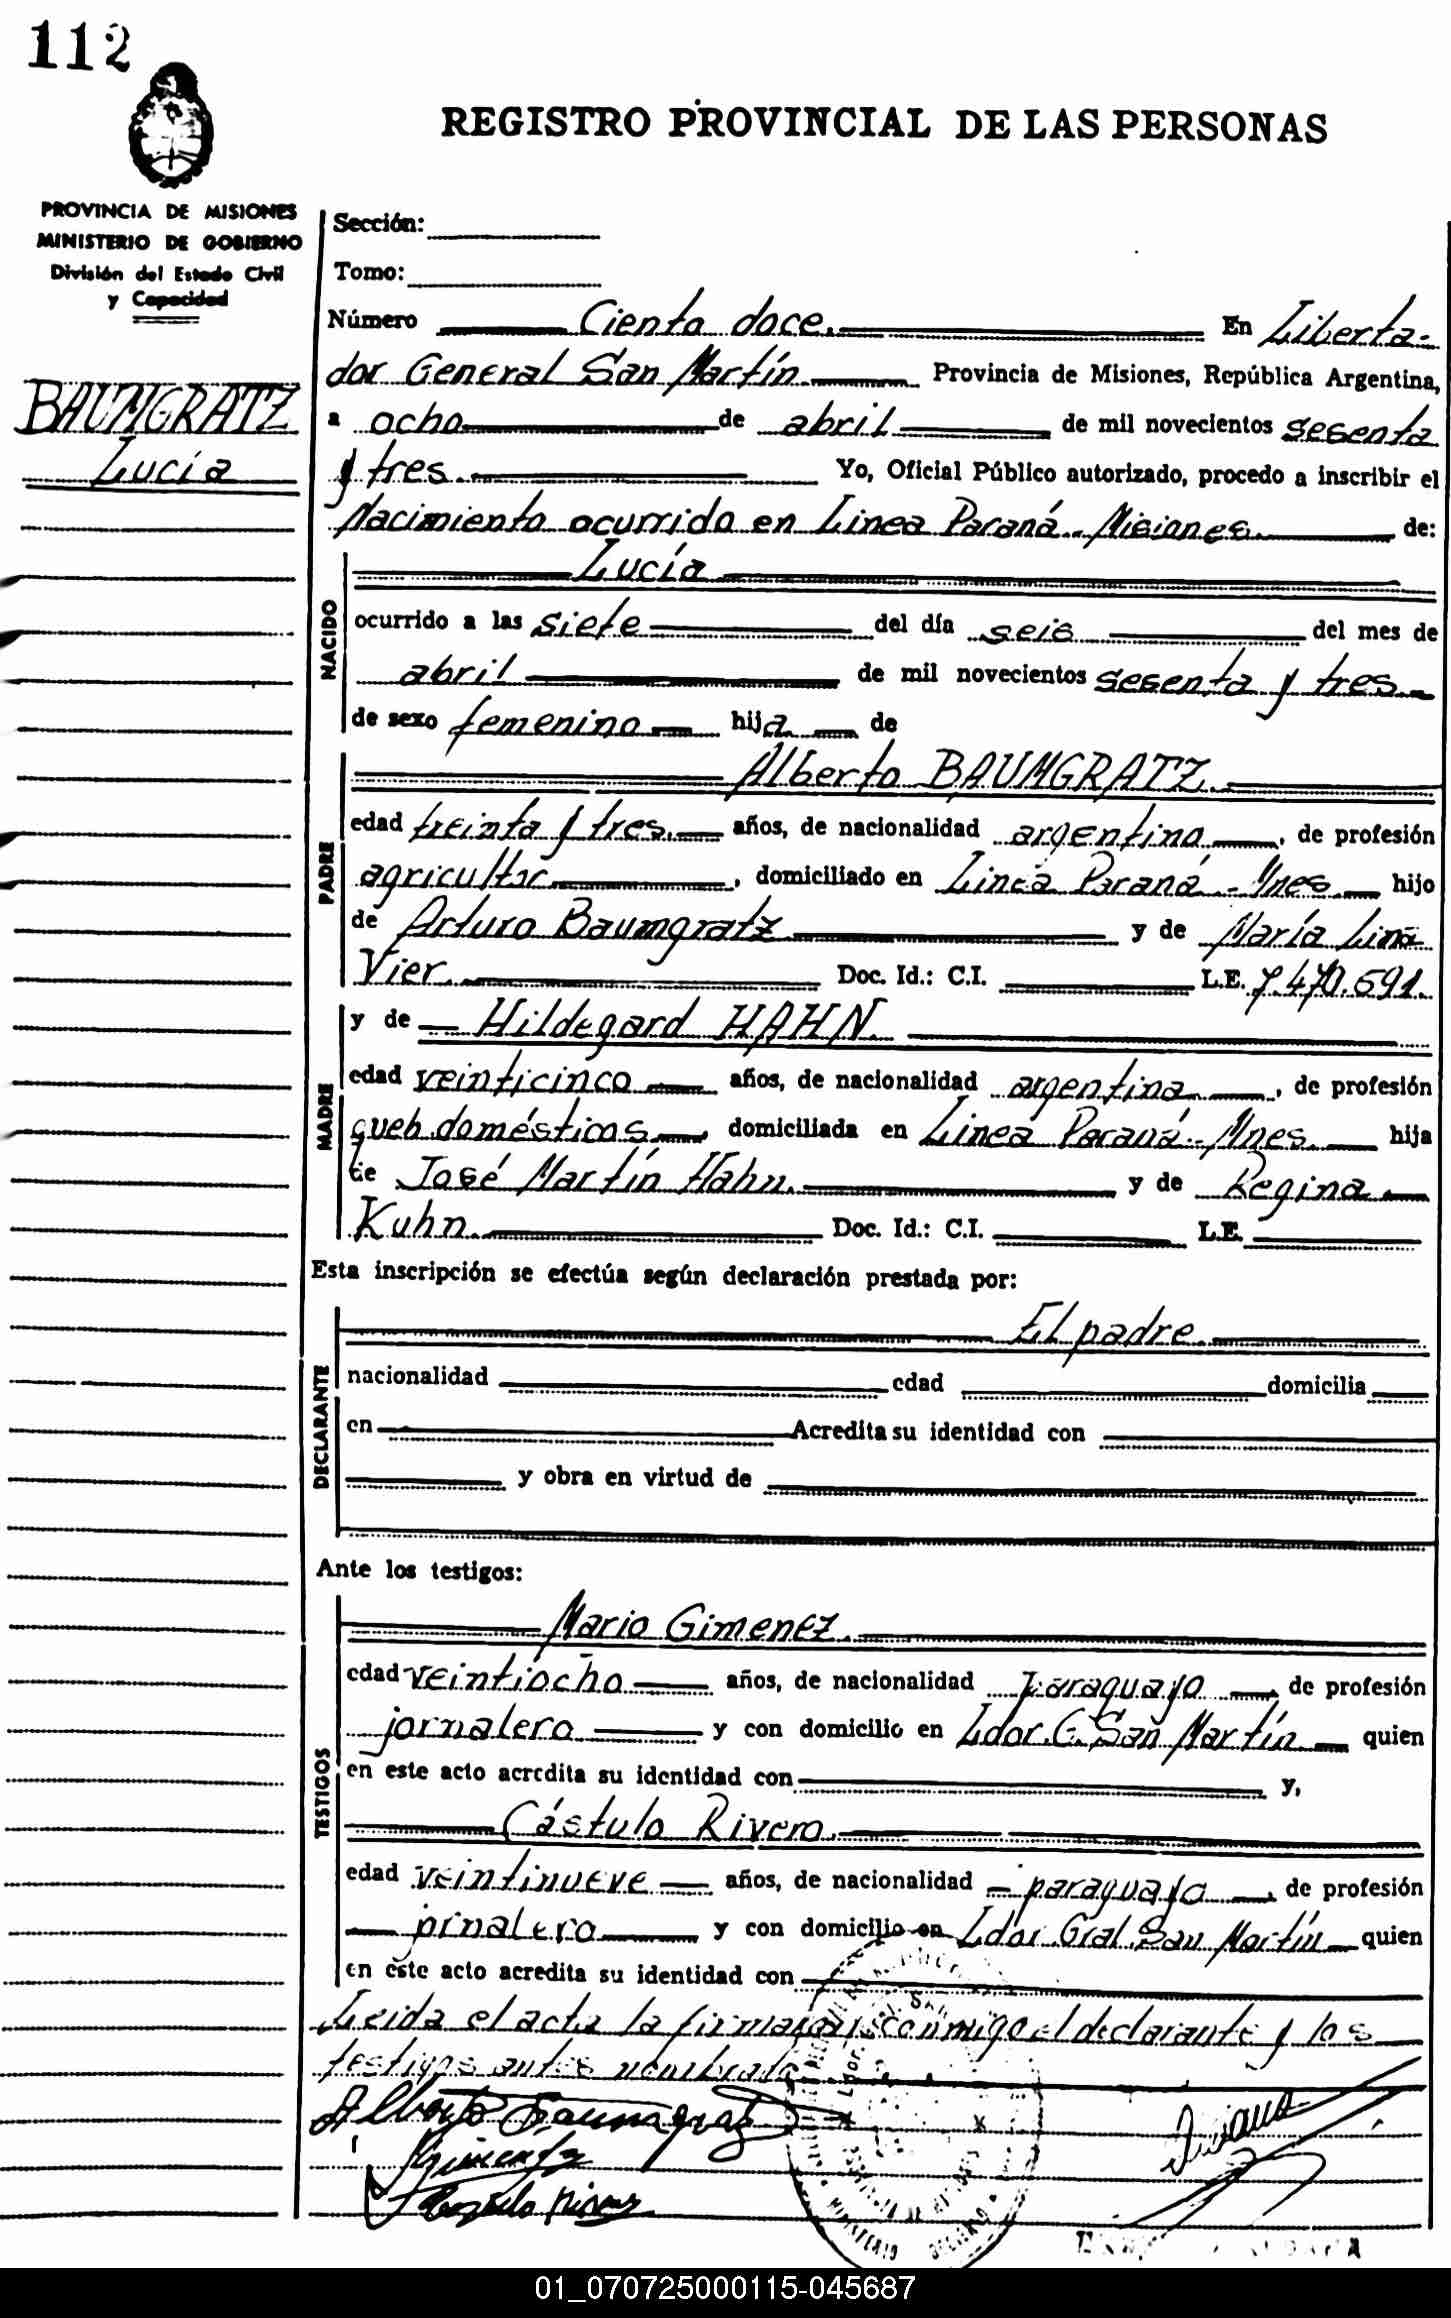 112
REGISTRO PROVINCIAL DE LAS PERSONAS
PROVINCIA DE MISIONES
MINISTERIO DE GOBIERNO
División del Estado Civil
y Capacidad
BAUMGRATZ
Lucía
Sección:
Tomo:
Número Ciento doce. En Liberta-
dor General San Martín. Provincia de Misiones, República Argentina,
a ocho de abril de mil novecientos sesenta
y tres. Yo, Oficial Público autorizado, procedo a inscribir el
Nacimiento ocurrido en Linea Paraná.- Misiones. de:
NACIDO
Lucía
ocurrido a las siete del día seis del mes de
abril de mil novecientos sesenta y tres.
de sexo femenino hija de
PADRE
Alberto BAUMGRATZ.
edad treinta y tres. años, de nacionalidad argentino, de profesión
agricultor, domiciliado en Linea Paraná - Mnes hijo
de Arturo Baumgratz y de María Lina
Vier. Doc. Id.: C.I. L.E. 7.470.591.
MADRE
y de Hildegard HAHN.
edad veinticinco años, de nacionalidad argentina, de profesión
queh.domésticos, domiciliada en Linea Paraná.- Mnes. hija
de José Martín Hahn. y de Regina
Kuhn. Doc. Id.: C.I. L.E.
Esta inscripción se efectúa según declaración prestada por:
DECLARANTE
El padre.
nacionalidad edad domicilia
en Acredita su identidad con
y obra en virtud de
Ante los testigos:
TESTIGOS
Mario Gimenez.
edad veintiocho años, de nacionalidad paraguayo, de profesión
jornalero y con domicilio en Ldor.G.San Martín. quien
en este acto acredita su identidad con y,
Cástulo Rivero.
edad veintinueve años, de nacionalidad paraguayo, de profesión
jornalero y con domicilio en Ldor.Gral.San Martín quien
en este acto acredita su identidad con
Leida el acta la firmaron conmigo el declarante y los
testigos antes
Alberto Baumgratz
01_070725000115-045687